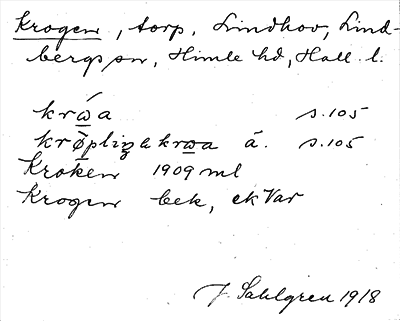 Krogen, torp, Lindhov, Lind-
bergs sn, Himle hd, Hall. l.
s. 105
á. s. 105
Kroken 1909 ml
Krogen bek, ekVar
J. Sahlgren 1918